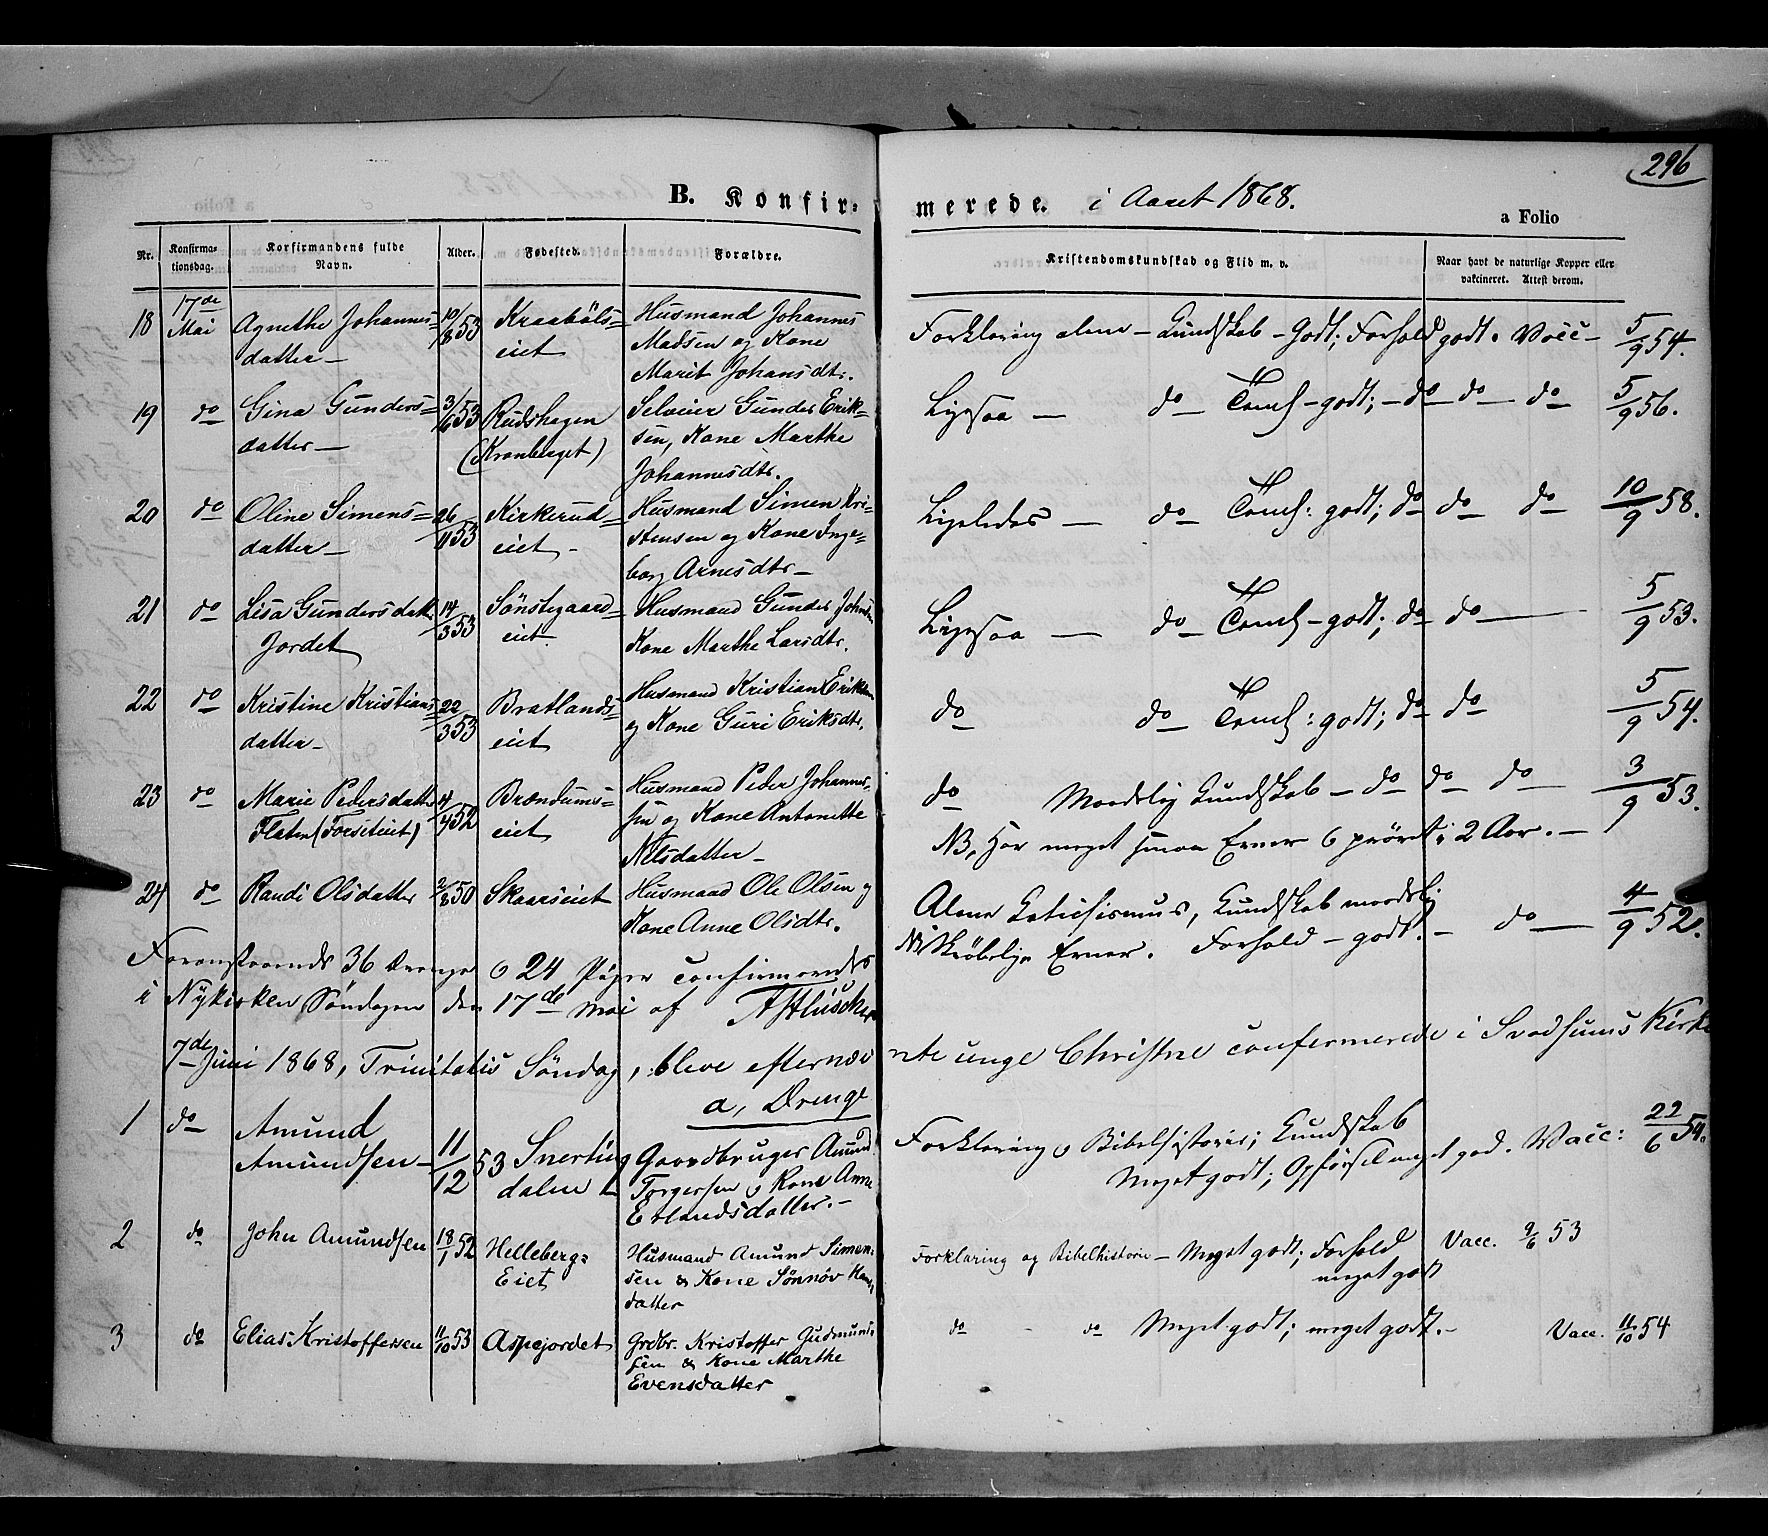 296
B. Konfir= merede. i Aaret 1868.
a Folio
Nr. Konfirma=tionsdag. Konfirmandens fulde Navn. Alder. Fødested. Forældre. Kristendomskundskab og Flid m. v. Naar havt de naturlige Kopper eller vakcineret. Attest derom.
18 17de Mai Agnethe Johannes= 10/8 53 Kraabøls= Husmand Johannes Forklaring alene – Kundskab – Godt; Forhold godt. Vacc – 5/9 54.
datter – eiet Madsen og Kone
Marit Johansdtr.
19 do Gina Gunders= 3/6 53 Rudshagen Selveier Gunder Erik= Ligesaa – do – Temel – godt; – do – do – do 5/9 56.
datter – (Kronberget) sen, Kone Marthe
Johannesdtr.
20 do Oline Simens= 26/11 53 Kirkerud= Husmand Simen Kri= Ligeledes – do – Temel: godt; do do do 10/9 58.
datter – eiet – stensen og Kone Inge=
borg Arnesdtr –
21 do Lisa Gundersdatt 14/3 53 Sønstegaard= Husmand Gunder Johns Ligesaa – do – Temel – godt; do do – 5/9 53.
Jordet eiet Kone Marthe Larsdtr.
22 do Kristine Kristians= 22/3 53 Bratlands= Husmand Kristian Eriksen do do – Temel: godt; do do 5/9 54.
datter – eiet og Kone Guri Eriksdtr.
23 do Marie Pedersdatter 4/4 52 Brændums= Husmand Peder Johannes= do Maadelig Kundskab – do – do do 3/9 53.
Flaten (Forseteiet) eiet sen og Kone Antonette NB, Har meget smaa Evner o prøvet i 2 Aar. –
Nilsdatter –
24 do Randi Olsdatter 2/8 50 Skaarseiet Husmand Ole Olsen og Alene Katechismus, Kundskab maadelig – do – 4/9 52.
Kone Anne Olsdtr. NB Skrøbelige Evner. Forhold – godt. –
Foranstaaende 36 Drenge o 24 Piger confirmerede
i Nykirken Søndagen den 17de Mai af
7de Juni 1868, Trinitatis Søndag, bleve efternævnte unge Christne confirmerede i Svadsums Kirke
a, Drenge
1 do Amund 11/12 53 Snerting Gaardbruger Amund Forklaring o Bibelhistorie; Kundskab Vacc: 22/6 54.
Amundsen – dalen Torgersen o Kone Anne Meget godt; Opførsel meget god.
Erlandsdatter. –
2 do John Amundsen 18/1 52 Helleberg= Husmand Amund Simen= Forklaring og Bibelhistorie – Meget godt; Forhold Vacc. 9/6 53
Eiet sen & Kone Sønnøv Hans= meget godt
datter
3 do Elias Kristoffersen 11/10 53 Aspejordet Grdbr. Kristoffer Gudmund= do – do Meget godt; meget godt. – Vacc. 11/10 54
sen & Kone Marthe
Evensdatter